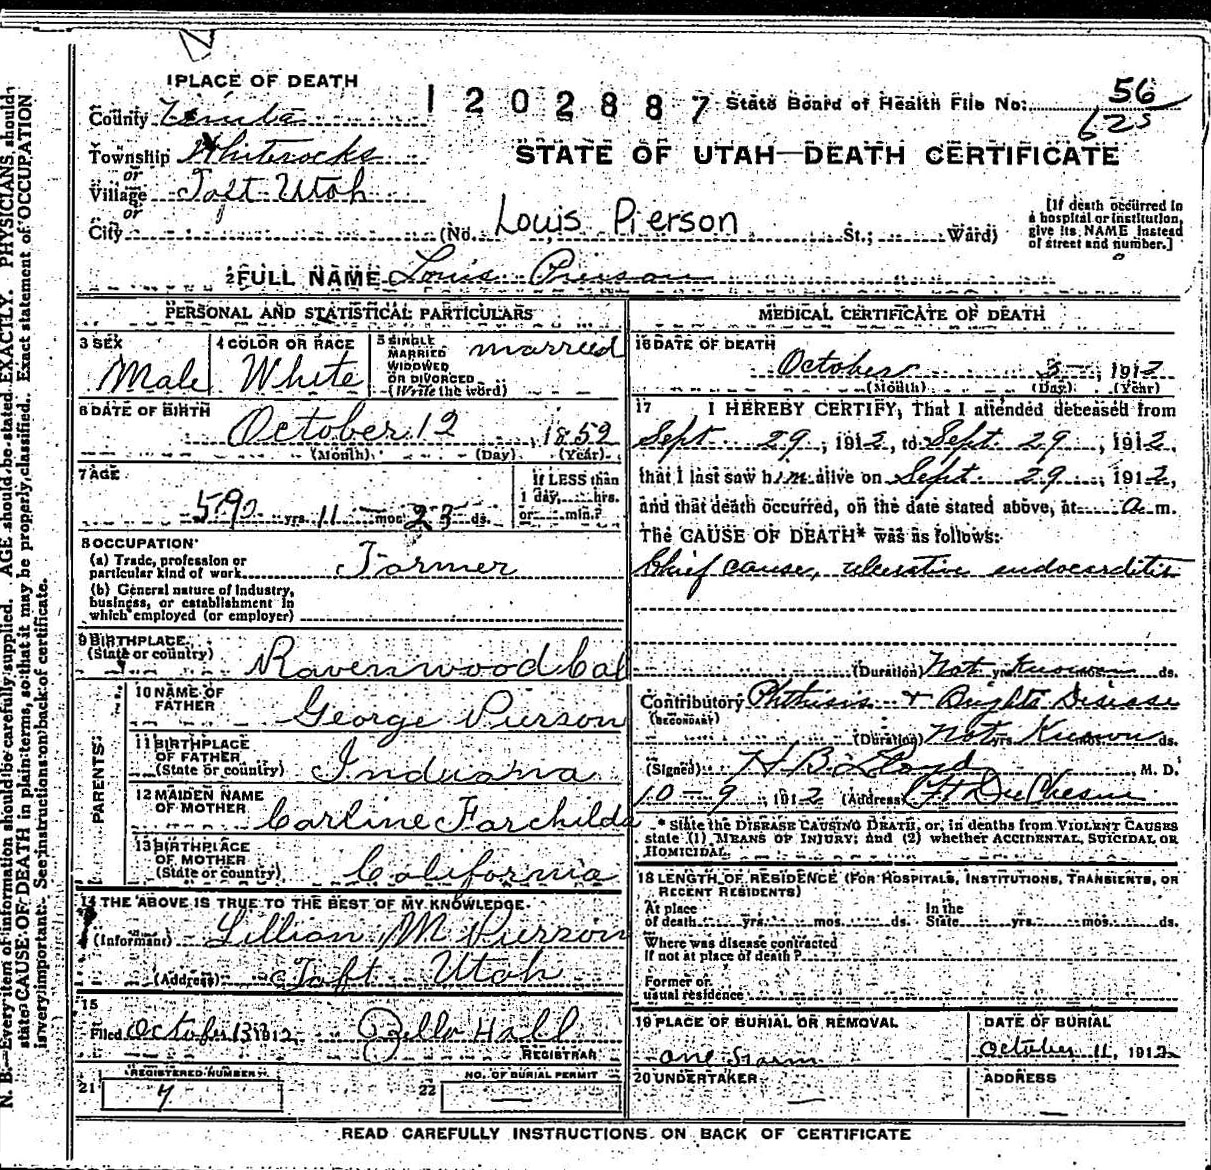 1 PLACE OF DEATH
1202887
State Board of Health File No. 56
625
County Uinta
Township Whiterocks
or
Village Taft Utah
or
City
STATE OF UTAH—DEATH CERTIFICATE
(No. Louis Pierson St.; Ward)
[If death occurred in
a hospital or institution,
give its NAME instead
of street and number.]
2 FULL NAME Louis Pierson
PERSONAL AND STATISTICAL PARTICULARS
3 SEX
Male
4 COLOR OR RACE
White
5 SINGLE
MARRIED
WIDOWED
OR DIVORCED
(Write the word)
married
6 DATE OF BIRTH
October 12, 1852
(Month) (Day) (Year)
7 AGE
59 yrs. 11 mos. 23 ds.
If LESS than
1 day, hrs.
or min.?
8 OCCUPATION
(a) Trade, profession or
particular kind of work Farmer
(b) General nature of industry,
business, or establishment in
which employed (or employer)
9 BIRTHPLACE
(State or country) Ravenwood Cal
PARENTS
10 NAME OF
FATHER George Pierson
11 BIRTHPLACE
OF FATHER
(State or country) Induana
12 MAIDEN NAME
OF MOTHER Carline Farchilds
13 BIRTHPLACE
OF MOTHER
(State or country) California
14 THE ABOVE IS TRUE TO THE BEST OF MY KNOWLEDGE
(Informant) Lillian M Pierson
(Address) Taft Utah
15
Filed October 13 1912 Zella Hall
REGISTRAR
21 REGISTERED NUMBER
7
22 NO. OF BURIAL PERMIT
MEDICAL CERTIFICATE OF DEATH
16 DATE OF DEATH
October 5, 1912
(Month) (Day) (Year)
17 I HEREBY CERTIFY, That I attended deceased from
Sept. 29, 1912, to Sept. 29, 1912,
that I last saw him alive on Sept. 29, 1912,
and that death occurred, on the date stated above, at a.m.
The CAUSE OF DEATH* was as follows:
Chief cause, ulcerative endocarditis
(Duration) Not yrs. Known mos. ds.
Contributory Phthisis + Brights Disease
(SECONDARY)
(Duration) Not yrs. Known ds.
(Signed) H B Lloyd, M. D.
10-9, 1912 (Address) Ft DuChesne
* State the DISEASE CAUSING DEATH, or, in deaths from VIOLENT CAUSES
state (1) MEANS OF INJURY; and (2) whether ACCIDENTAL, SUICIDAL OR
HOMICIDAL.
18 LENGTH OF RESIDENCE (FOR HOSPITALS, INSTITUTIONS, TRANSIENTS, OR
RECENT RESIDENTS)
At place
of death yrs. mos. ds.
In the
State yrs. mos. ds.
Where was disease contracted
If not at place of death?
Former or
usual residence
19 PLACE OF BURIAL OR REMOVAL
one farm
DATE OF BURIAL
October 11, 1912
20 UNDERTAKER
ADDRESS
READ CAREFULLY INSTRUCTIONS ON BACK OF CERTIFICATE
N. B.—Every item of information should be carefully supplied. AGE should be stated EXACTLY. PHYSICIANS should
state CAUSE OF DEATH in plain terms, so that it may be properly classified. Exact statement of OCCUPATION
is very important. See instructions on back of certificate.